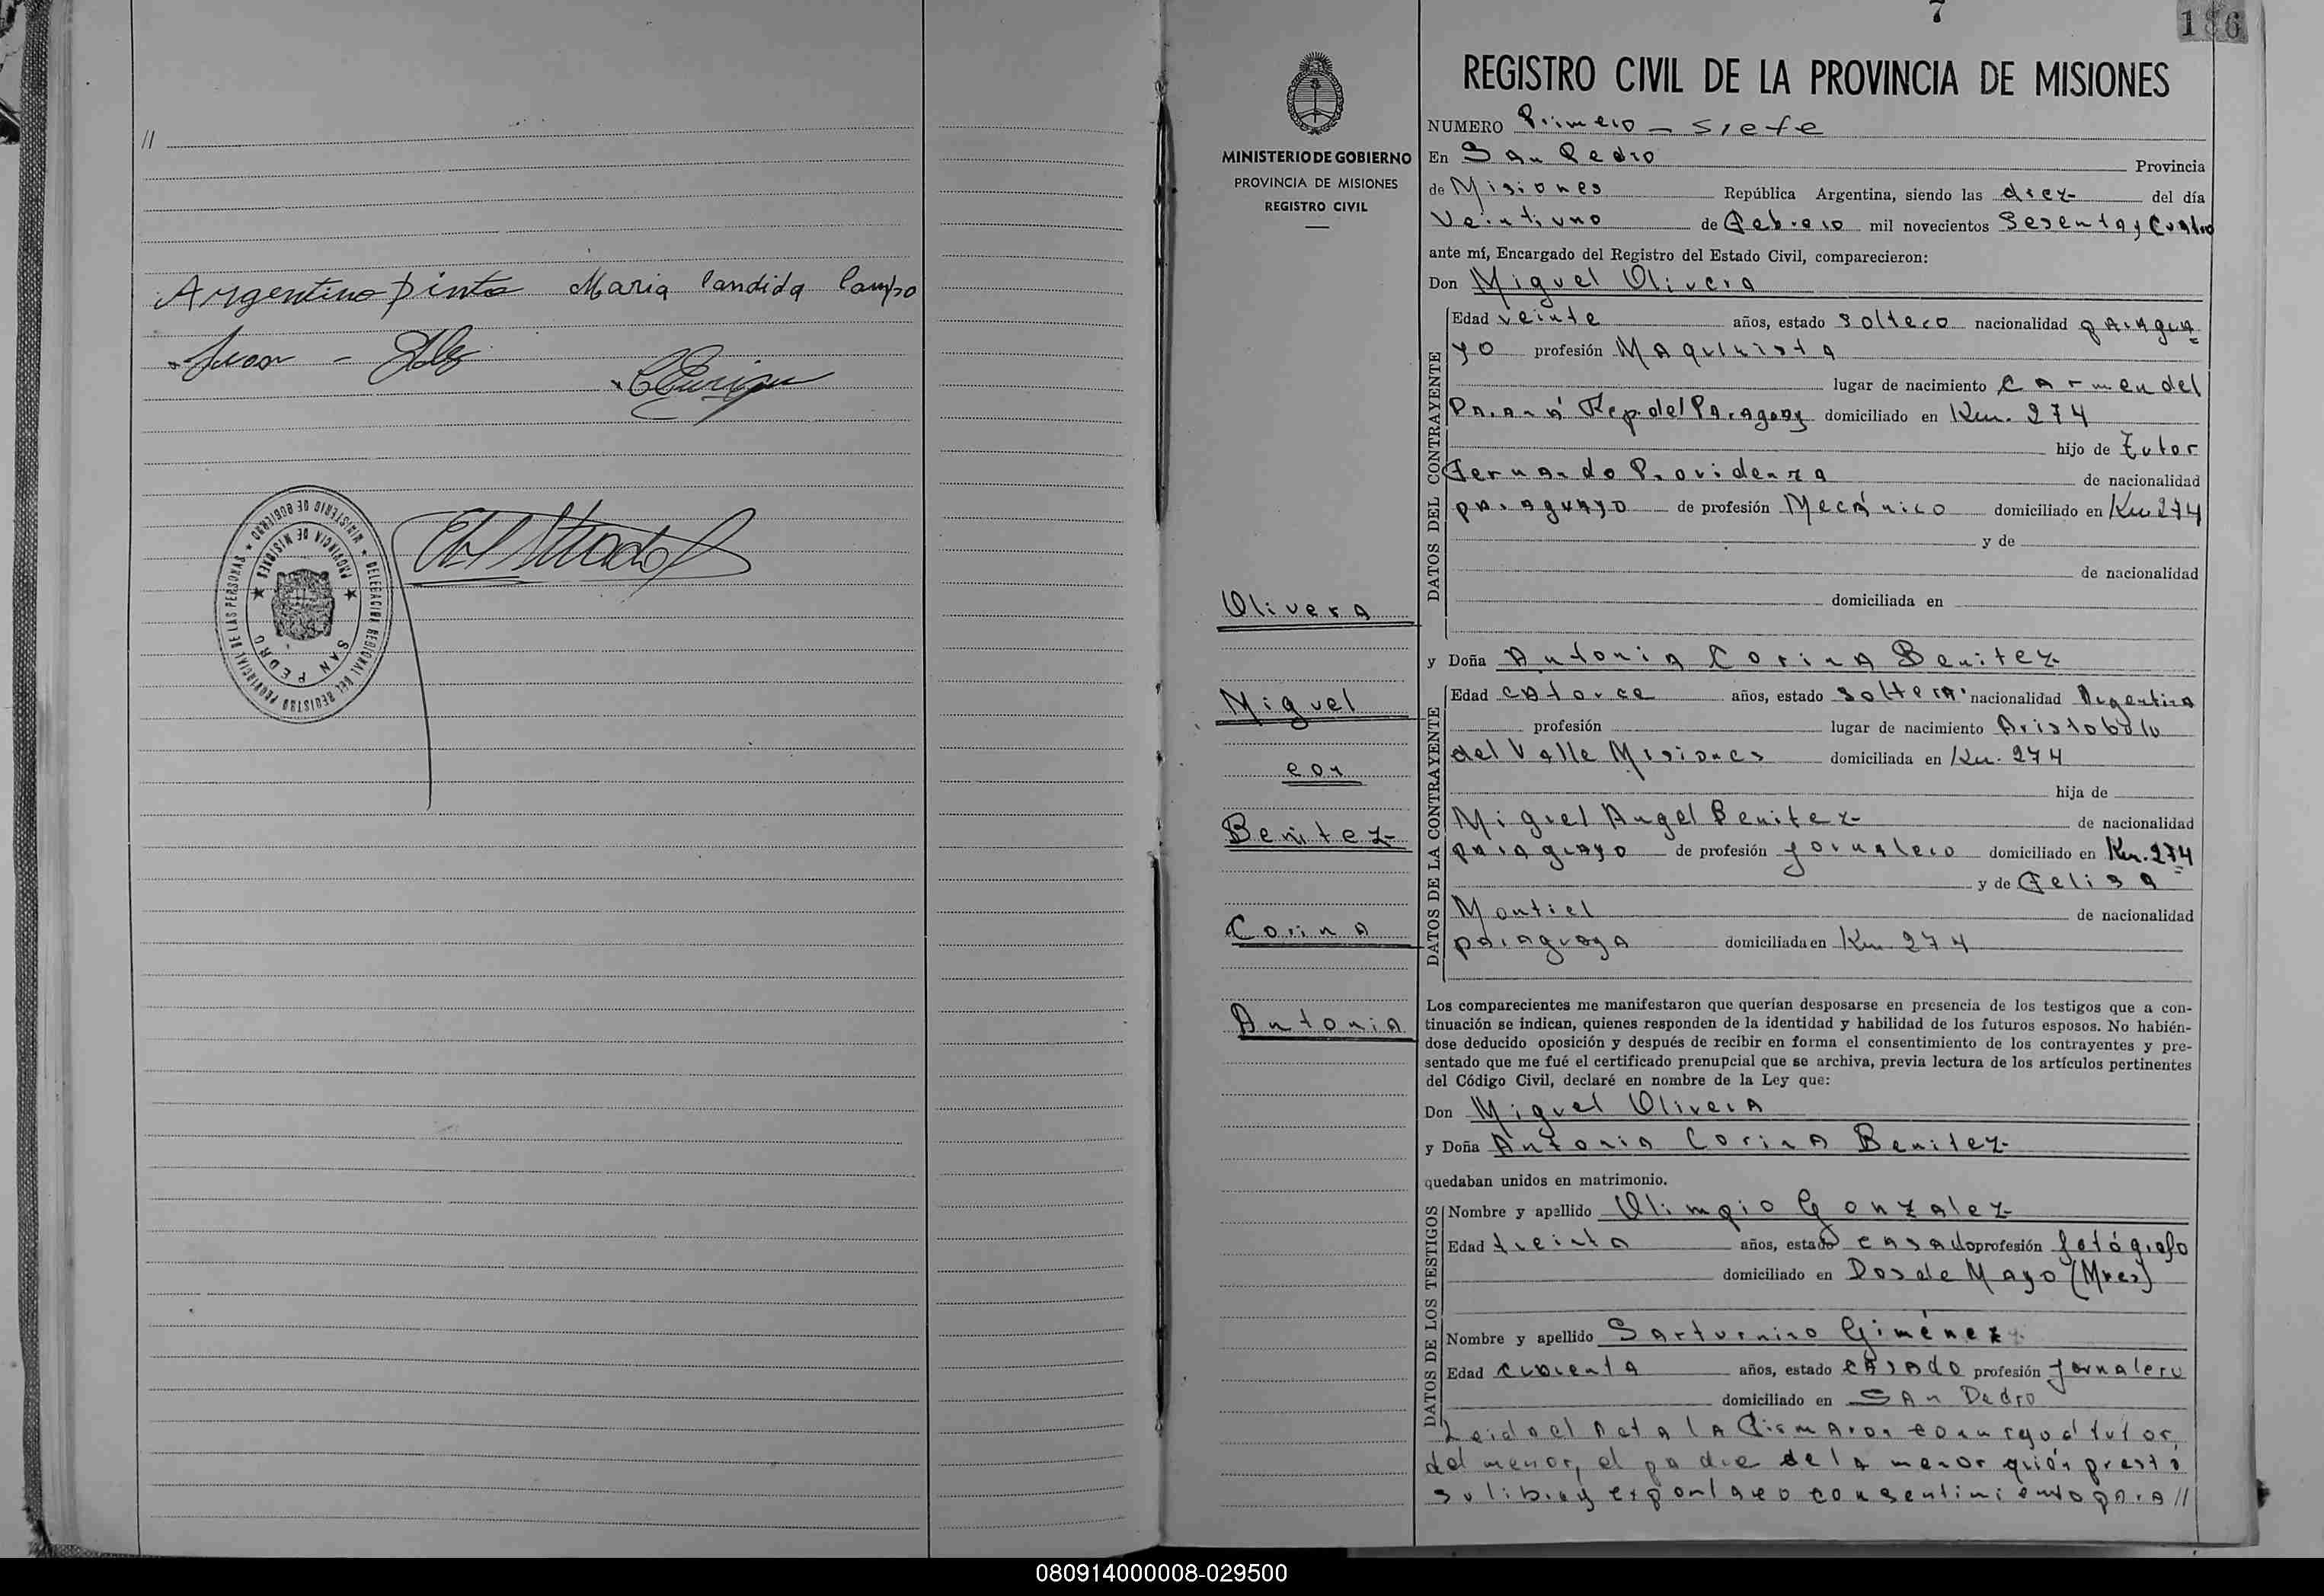 //
Argentino pinto Maria Candida Campo
MINISTERIO DE GOBIERNO
PROVINCIA DE MISIONES
DELEGACION REGIONAL DEL REGISTRO PROVINCIAL DE LAS PERSONAS
SAN PEDRO
7
186
MINISTERIO DE GOBIERNO
PROVINCIA DE MISIONES
REGISTRO CIVIL
Olivera
Miguel
con
Benitez
Corina
Antonia
REGISTRO CIVIL DE LA PROVINCIA DE MISIONES
NUMERO Primero - siete
En San Pedro Provincia
de Misiones República Argentina, siendo las diez del día
Veintiuno de Febrero mil novecientos Sesenta y Cuatro
ante mí, Encargado del Registro del Estado Civil, comparecieron:
Don Miguel Olivera
DATOS DEL CONTRAYENTE
Edad veinte años, estado soltero nacionalidad paragua
yo profesión Maquinista
lugar de nacimiento Carmen del
Paraná Rep. del Paraguay domiciliado en Km. 274
hijo de Tutor
Fernando Providenza de nacionalidad
paraguayo de profesión Mecánico domiciliado en Km 274
y de
de nacionalidad
domiciliada en
y Doña Antonia Corina Benitez
DATOS DE LA CONTRAYENTE
Edad catorce años, estado soltera nacionalidad Argentina
profesión lugar de nacimiento Aristobulo
del Valle Misiones domiciliada en Km. 274
hija de
Miguel Angel Benitez de nacionalidad
paraguayo de profesión jornalero domiciliado en Km. 274
y de Felisa
Montiel de nacionalidad
paraguaya domiciliada en Km 274
Los comparecientes me manifestaron que querían desposarse en presencia de los testigos que a con-
tinuación se indican, quienes responden de la identidad y habilidad de los futuros esposos. No habién-
dose deducido oposición y después de recibir en forma el consentimiento de los contrayentes y pre-
sentado que me fué el certificado prenupcial que se archiva, previa lectura de los artículos pertinentes
del Código Civil, declaré en nombre de la Ley que:
Don Miguel Olivera
y Doña Antonia Corina Benitez
quedaban unidos en matrimonio.
DATOS DE LOS TESTIGOS
Nombre y apellido Olimpio Gonzalez
Edad treinta años, estado casado profesión fotógrafo
domiciliado en Dos de Mayo (Mnes)
Nombre y apellido Sarturnino Giménez
Edad cuarenta años, estado casado profesión jornalero
domiciliado en San Pedro
Leida el Acta la firmaron el tutor
del menor, el padre de la menor quién prestó
su libre y expontaneo consentimiento para //
080914000008-029500